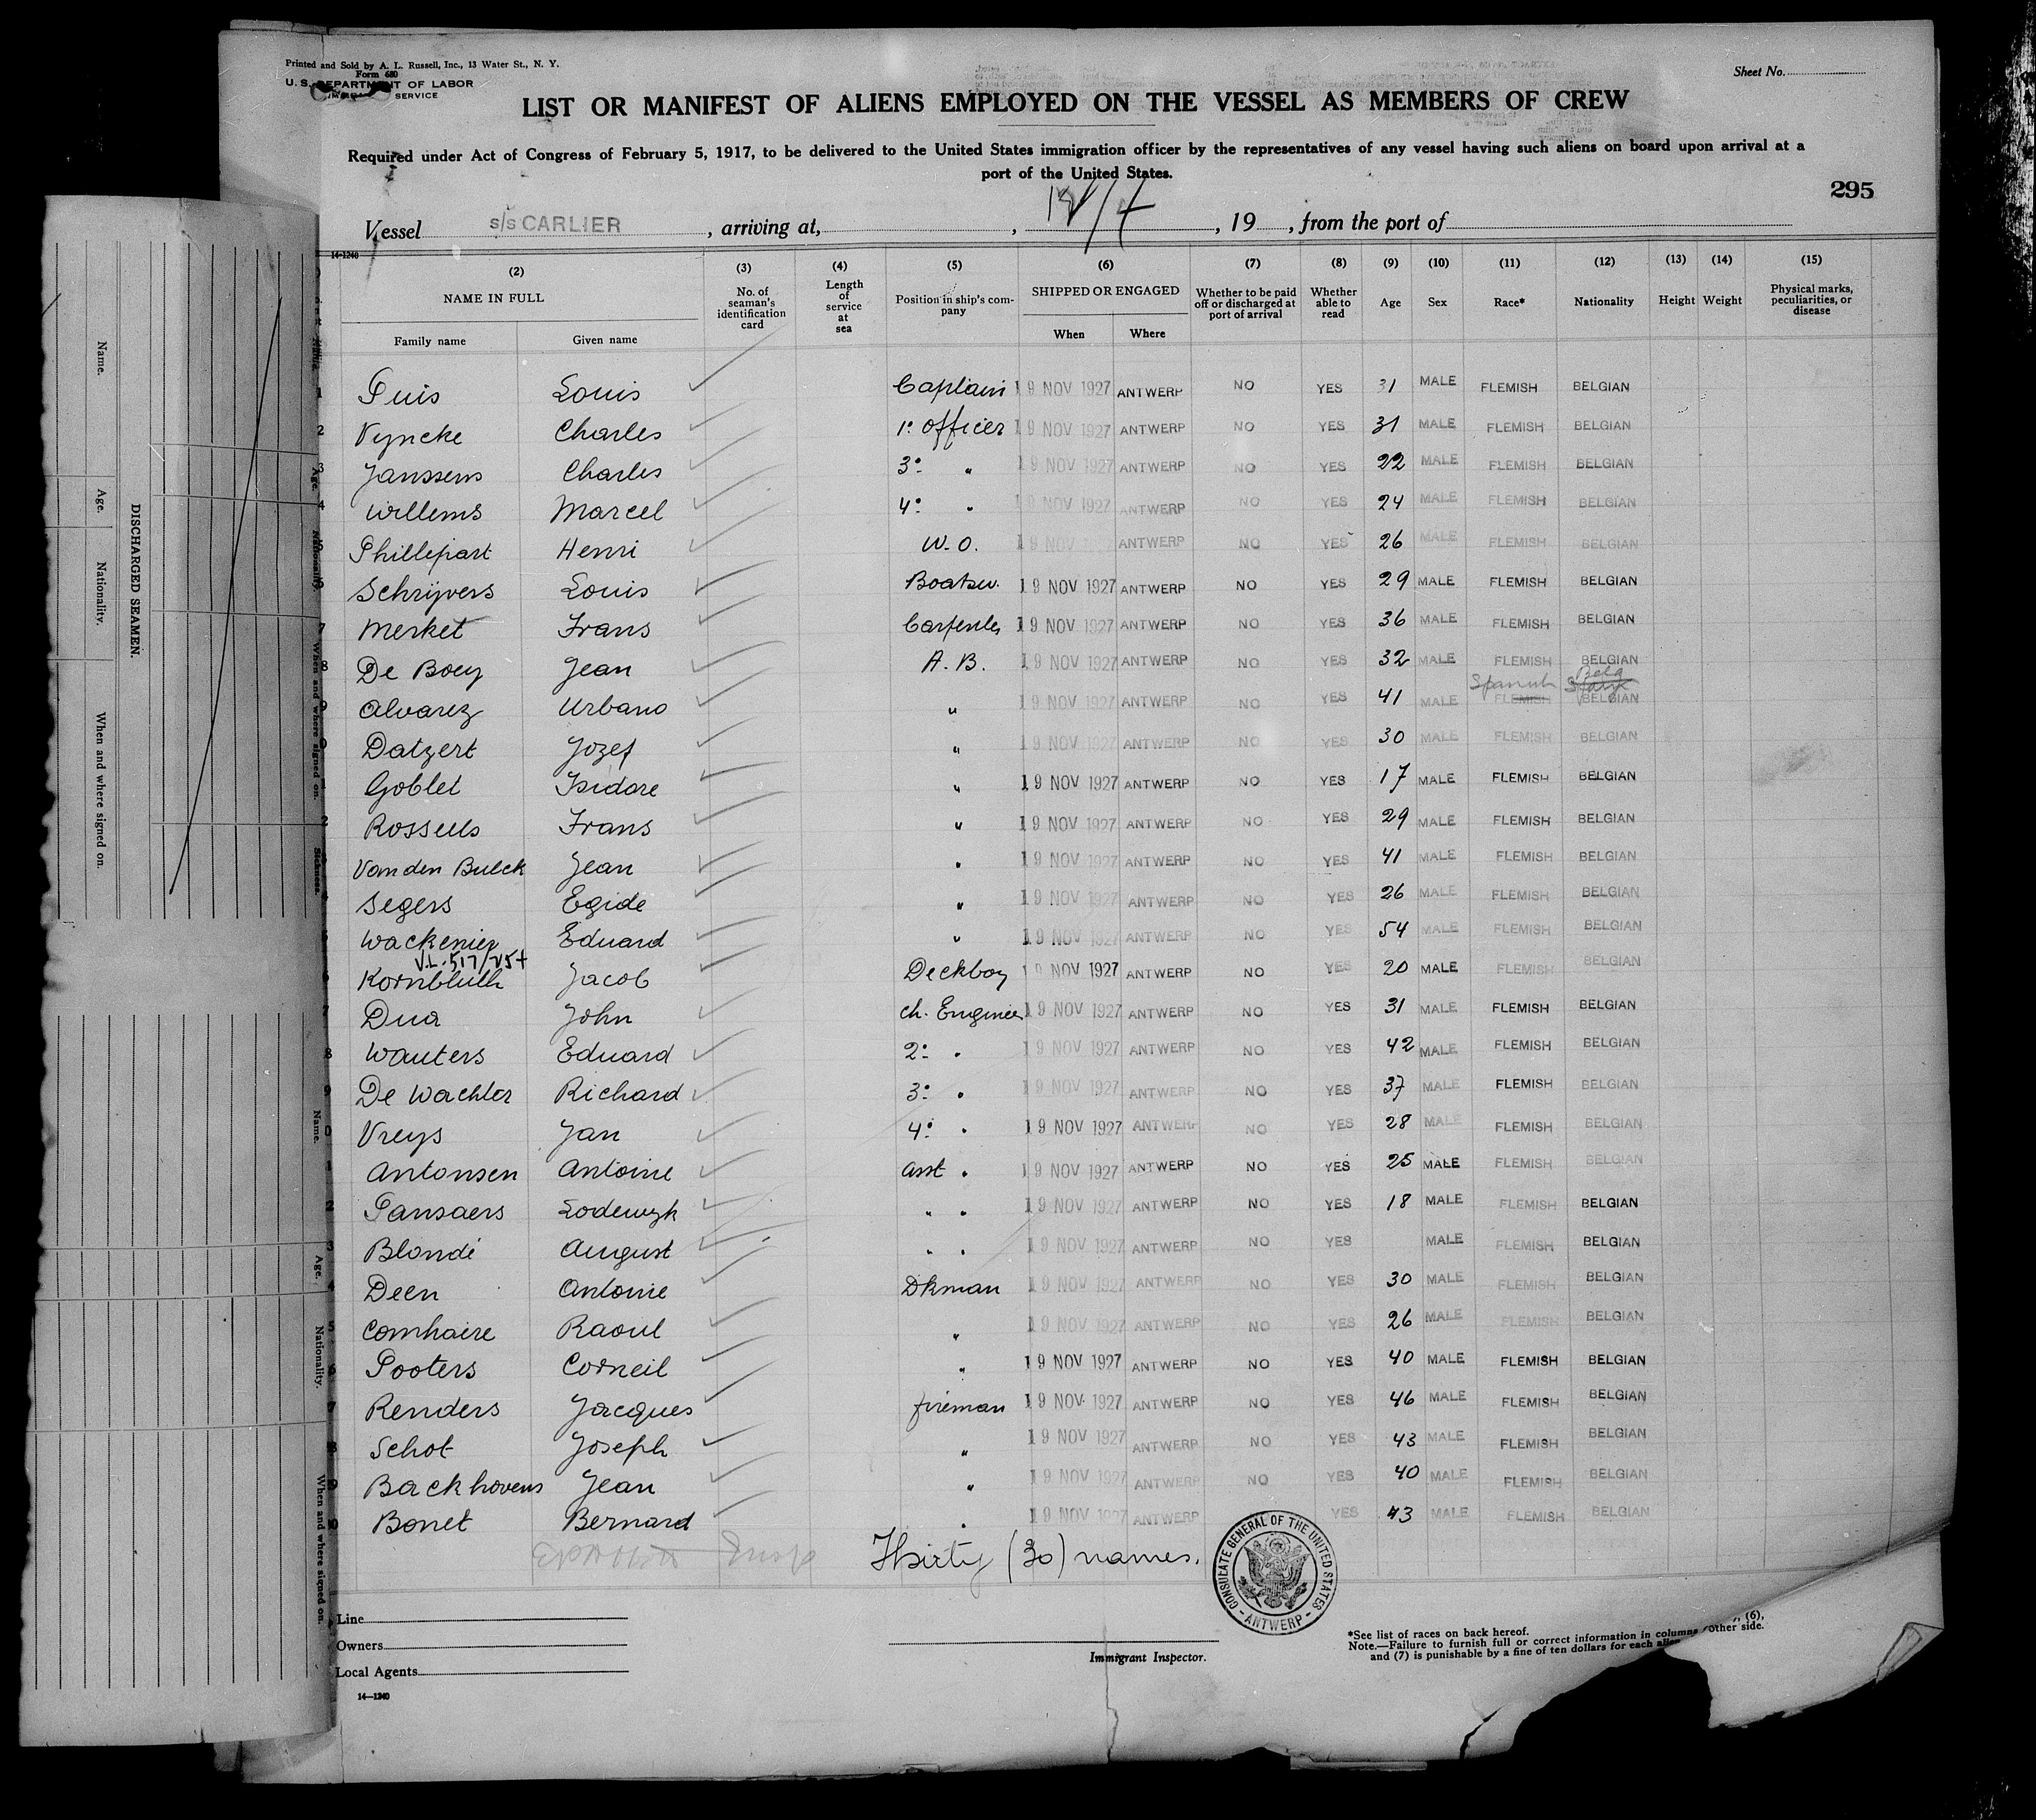 Printed and Sold by A. L. Russell, Inc., 13 Water St., N. Y.
Form 680
U. S. DEPARTMENT OF LABOR
SERVICE
Sheet No.
LIST OR MANIFEST OF ALIENS EMPLOYED ON THE VESSEL AS MEMBERS OF CREW
Required under Act of Congress of February 5, 1917, to be delivered to the United States immigration officer by the representatives of any vessel having such aliens on board upon arrival at a
port of the United States.
295
Vessel s/s CARLIER, arriving at, , 12/4, 19 , from the port of
14-1240
(2) (3) (4) (5) (6) (7) (8) (9) (10) (11) (12) (13) (14) (15)
NAME IN FULL No. of seaman's identification card Length of service at sea Position in ship's company SHIPPED OR ENGAGED Whether to be paid off or discharged at port of arrival Whether able to read Age Sex Race* Nationality Height Weight Physical marks, peculiarities, or disease
Family name Given name When Where
1 Puis Louis Captain 19 NOV 1927 ANTWERP NO YES 31 MALE FLEMISH BELGIAN
2 Vyncke Charles 1° officer 19 NOV 1927 ANTWERP NO YES 31 MALE FLEMISH BELGIAN
3 Janssens Charles 3° " 19 NOV 1927 ANTWERP NO YES 22 MALE FLEMISH BELGIAN
4 Willems Marcel 4° " 19 NOV 1927 ANTWERP NO YES 24 MALE FLEMISH BELGIAN
Phillepart Henri W.O. 19 NOV ANTWERP NO YES 26 MALE FLEMISH BELGIAN
6 Schrijvers Louis Boatsw. 19 NOV 1927 ANTWERP NO YES 29 MALE FLEMISH BELGIAN
7 Merket Frans Carpenter 19 NOV 1927 ANTWERP NO YES 36 MALE FLEMISH BELGIAN
8 De Boey Jean A.B. 19 NOV 1927 ANTWERP NO YES 32 MALE FLEMISH BELGIAN
Spanish Belg
9 Alvarez Urbano " 19 NOV 1927 ANTWERP NO YES 41 MALE FLEMISH BELGIAN
0 Datzert Jozef " 19 NOV 1927 ANTWERP NO YES 30 MALE FLEMISH BELGIAN
Goblet Isidore " 19 NOV 1927 ANTWERP NO YES 17 MALE FLEMISH BELGIAN
2 Rosseels Frans " 19 NOV 1927 ANTWERP NO YES 29 MALE FLEMISH BELGIAN
Van den Bulck Jean " 19 NOV 1927 ANTWERP NO YES 41 MALE FLEMISH BELGIAN
Segers Egide " 19 NOV 1927 ANTWERP NO YES 26 MALE FLEMISH BELGIAN
Wackenier Eduard " 19 NOV 1927 ANTWERP NO YES 54 MALE FLEMISH BELGIAN
Kornblüth Jacob Deckboy 19 NOV 1927 ANTWERP NO YES 20 MALE FLEMISH BELGIAN
7 Dua John Ch. Engineer 19 NOV 1927 ANTWERP NO YES 31 MALE FLEMISH BELGIAN
8 Wauters Eduard 2° " 19 NOV 1927 ANTWERP NO YES 42 MALE FLEMISH BELGIAN
9 De Wachter Richard 3° " 19 NOV 1927 ANTWERP NO YES 37 MALE FLEMISH BELGIAN
0 Vreys Jan 4° " 19 NOV 1927 ANTWERP NO YES 28 MALE FLEMISH BELGIAN
1 Antonsen Antoine Asst " 19 NOV 1927 ANTWERP NO YES 25 MALE FLEMISH BELGIAN
2 Pansaers Lodewyk " " 19 NOV 1927 ANTWERP NO YES 18 MALE FLEMISH BELGIAN
3 Blondé August " " 19 NOV 1927 ANTWERP NO YES MALE FLEMISH BELGIAN
4 Deen Antoine Dkman 19 NOV 1927 ANTWERP NO YES 30 MALE FLEMISH BELGIAN
5 Comhaire Raoul " 19 NOV 1927 ANTWERP NO YES 26 MALE FLEMISH BELGIAN
6 Pooters Corneil " 19 NOV 1927 ANTWERP NO YES 40 MALE FLEMISH BELGIAN
7 Renders Jacques fireman 19 NOV 1927 ANTWERP NO YES 46 MALE FLEMISH BELGIAN
8 Schot Joseph " 19 NOV 1927 ANTWERP NO YES 43 MALE FLEMISH BELGIAN
9 Backhovens Jean " 19 NOV 1927 ANTWERP NO YES 40 MALE FLEMISH BELGIAN
Bonet Bernard " 19 NOV 1927 ANTWERP YES 43 MALE FLEMISH BELGIAN
Thirty (30) names.
CONSULATE GENERAL OF THE UNITED STATES
ANTWERP
Line
Owners
Local Agents
14—1240
Immigrant Inspector.
*See list of races on back hereof.
Note.—Failure to furnish full or correct information in columns (6),
and (7) is punishable by a fine of ten dollars for each alien other side.
DISCHARGED SEAMEN.
Name.
Age.
Nationality.
When and where signed on.
Sickness.
Name.
Age.
Nationality.
When and where signed on.